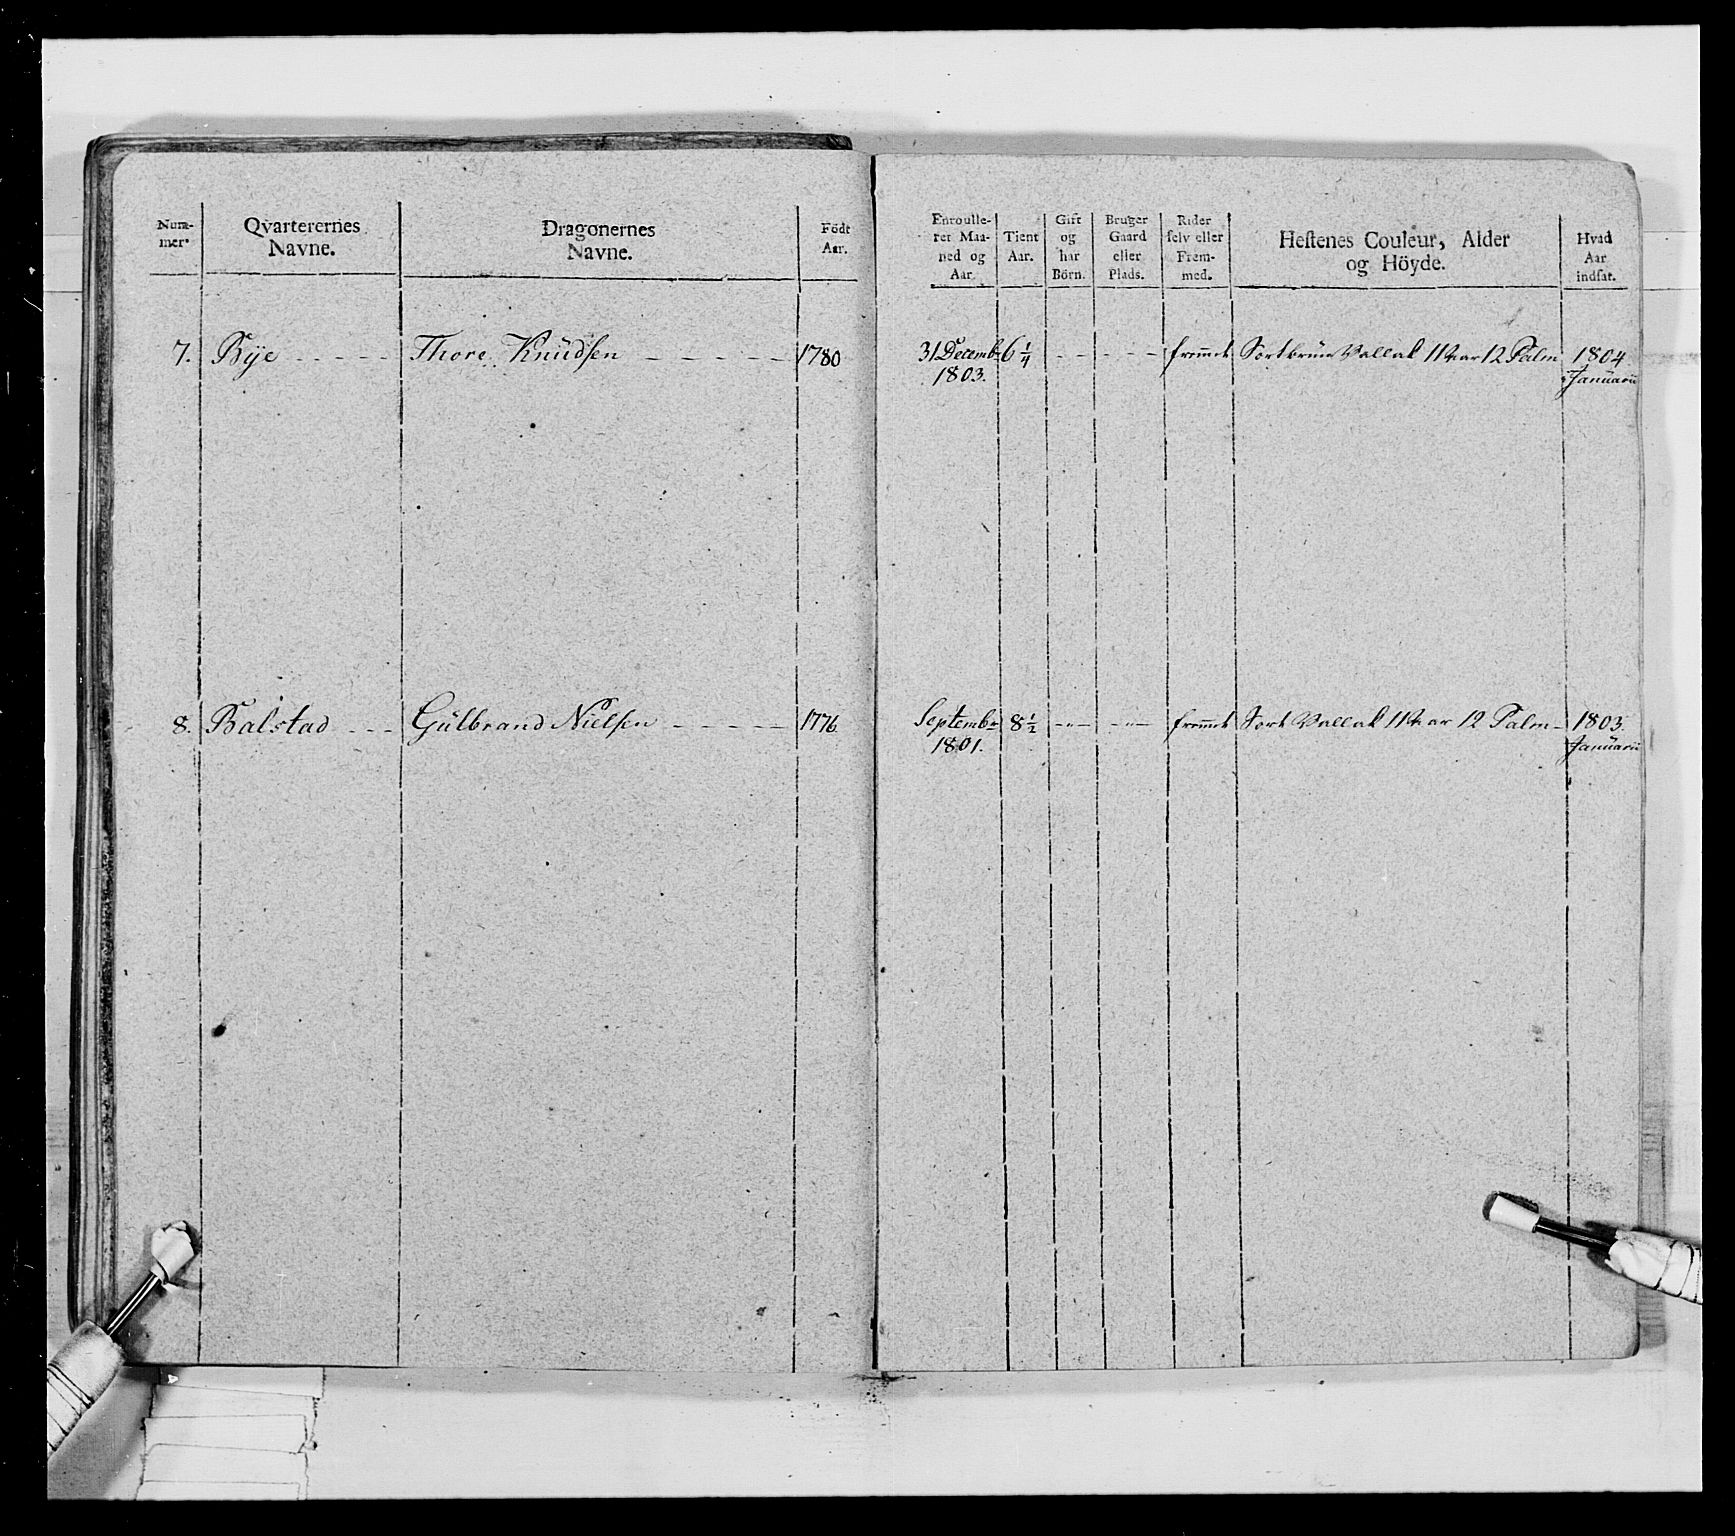 Num-
mer.
Qvarterernes
Navne.
Dragonernes
Navne.
Födt
Aar.
Enroulle-
ret Maa-
ned og
Aar.
Tient
Aar.
Gift
og
har
Börn.
Bruger
Gaard
eller
Plads.
Rider
selv eller
Frem-
med.
Hestenes Couleur, Alder
og Höyde.
Hvad
Aar
indsat.
7. Bye - - - - - Thore Knüdsen - - - - - - 1780 31 Decemb: 6 1/4 - - - - - - fremde Sortbrün Vallak 11 Aar 12 Palm 1804
1803. Januarii
8. Balstad - - - Gülbrand Nielsen - - - - - 1776. Septemb: 8 1/2 - " - - " - fremde Sort Vallak 11 Aar 12 Palm - 1803.
1801. Januarii